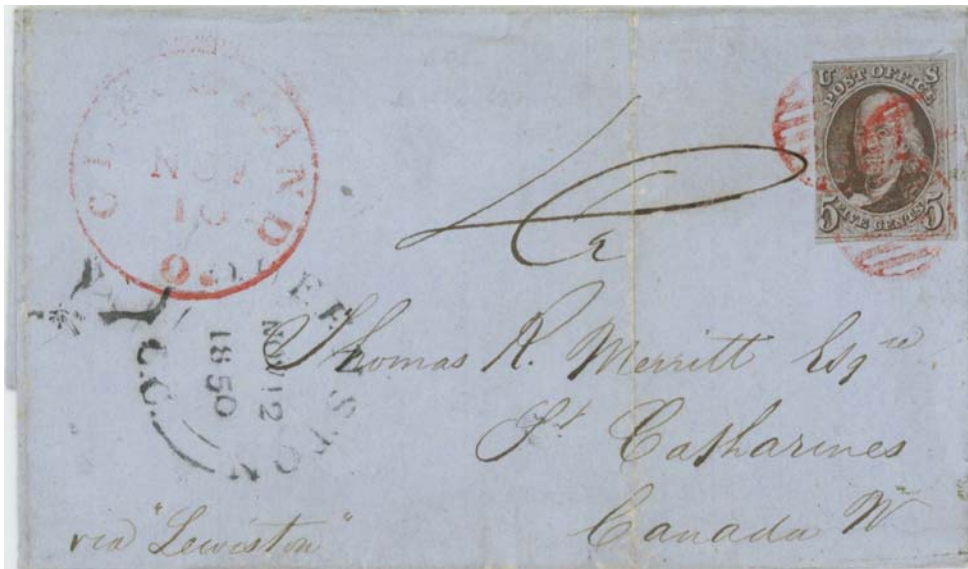 CLEVELAND O.
NOV
10
U S
POST OFFICE
5 FIVE CENTS 5
QUEENSTON
NOV 12
1850
U.C.
Thomas R. Merritt Esqre
St Catharines
Canada W
via "Lewiston"